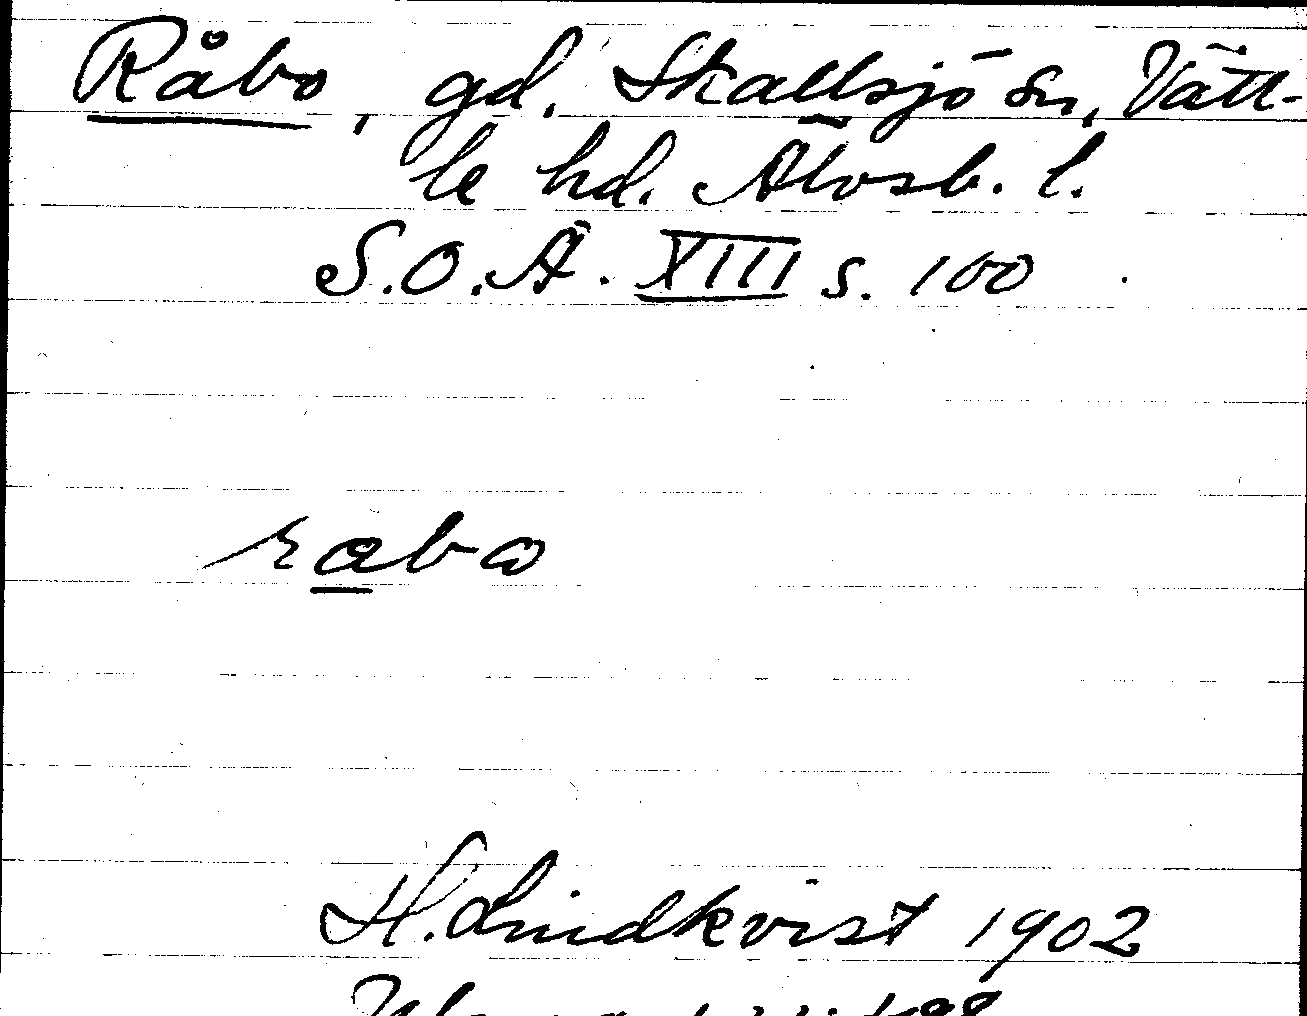 Råbo, gd. Skallsjö sn, Vätt-
le hd. Älvsb. l.
S.O.Ä. XIII s. 100
råbo
H. Lindkvist 1902